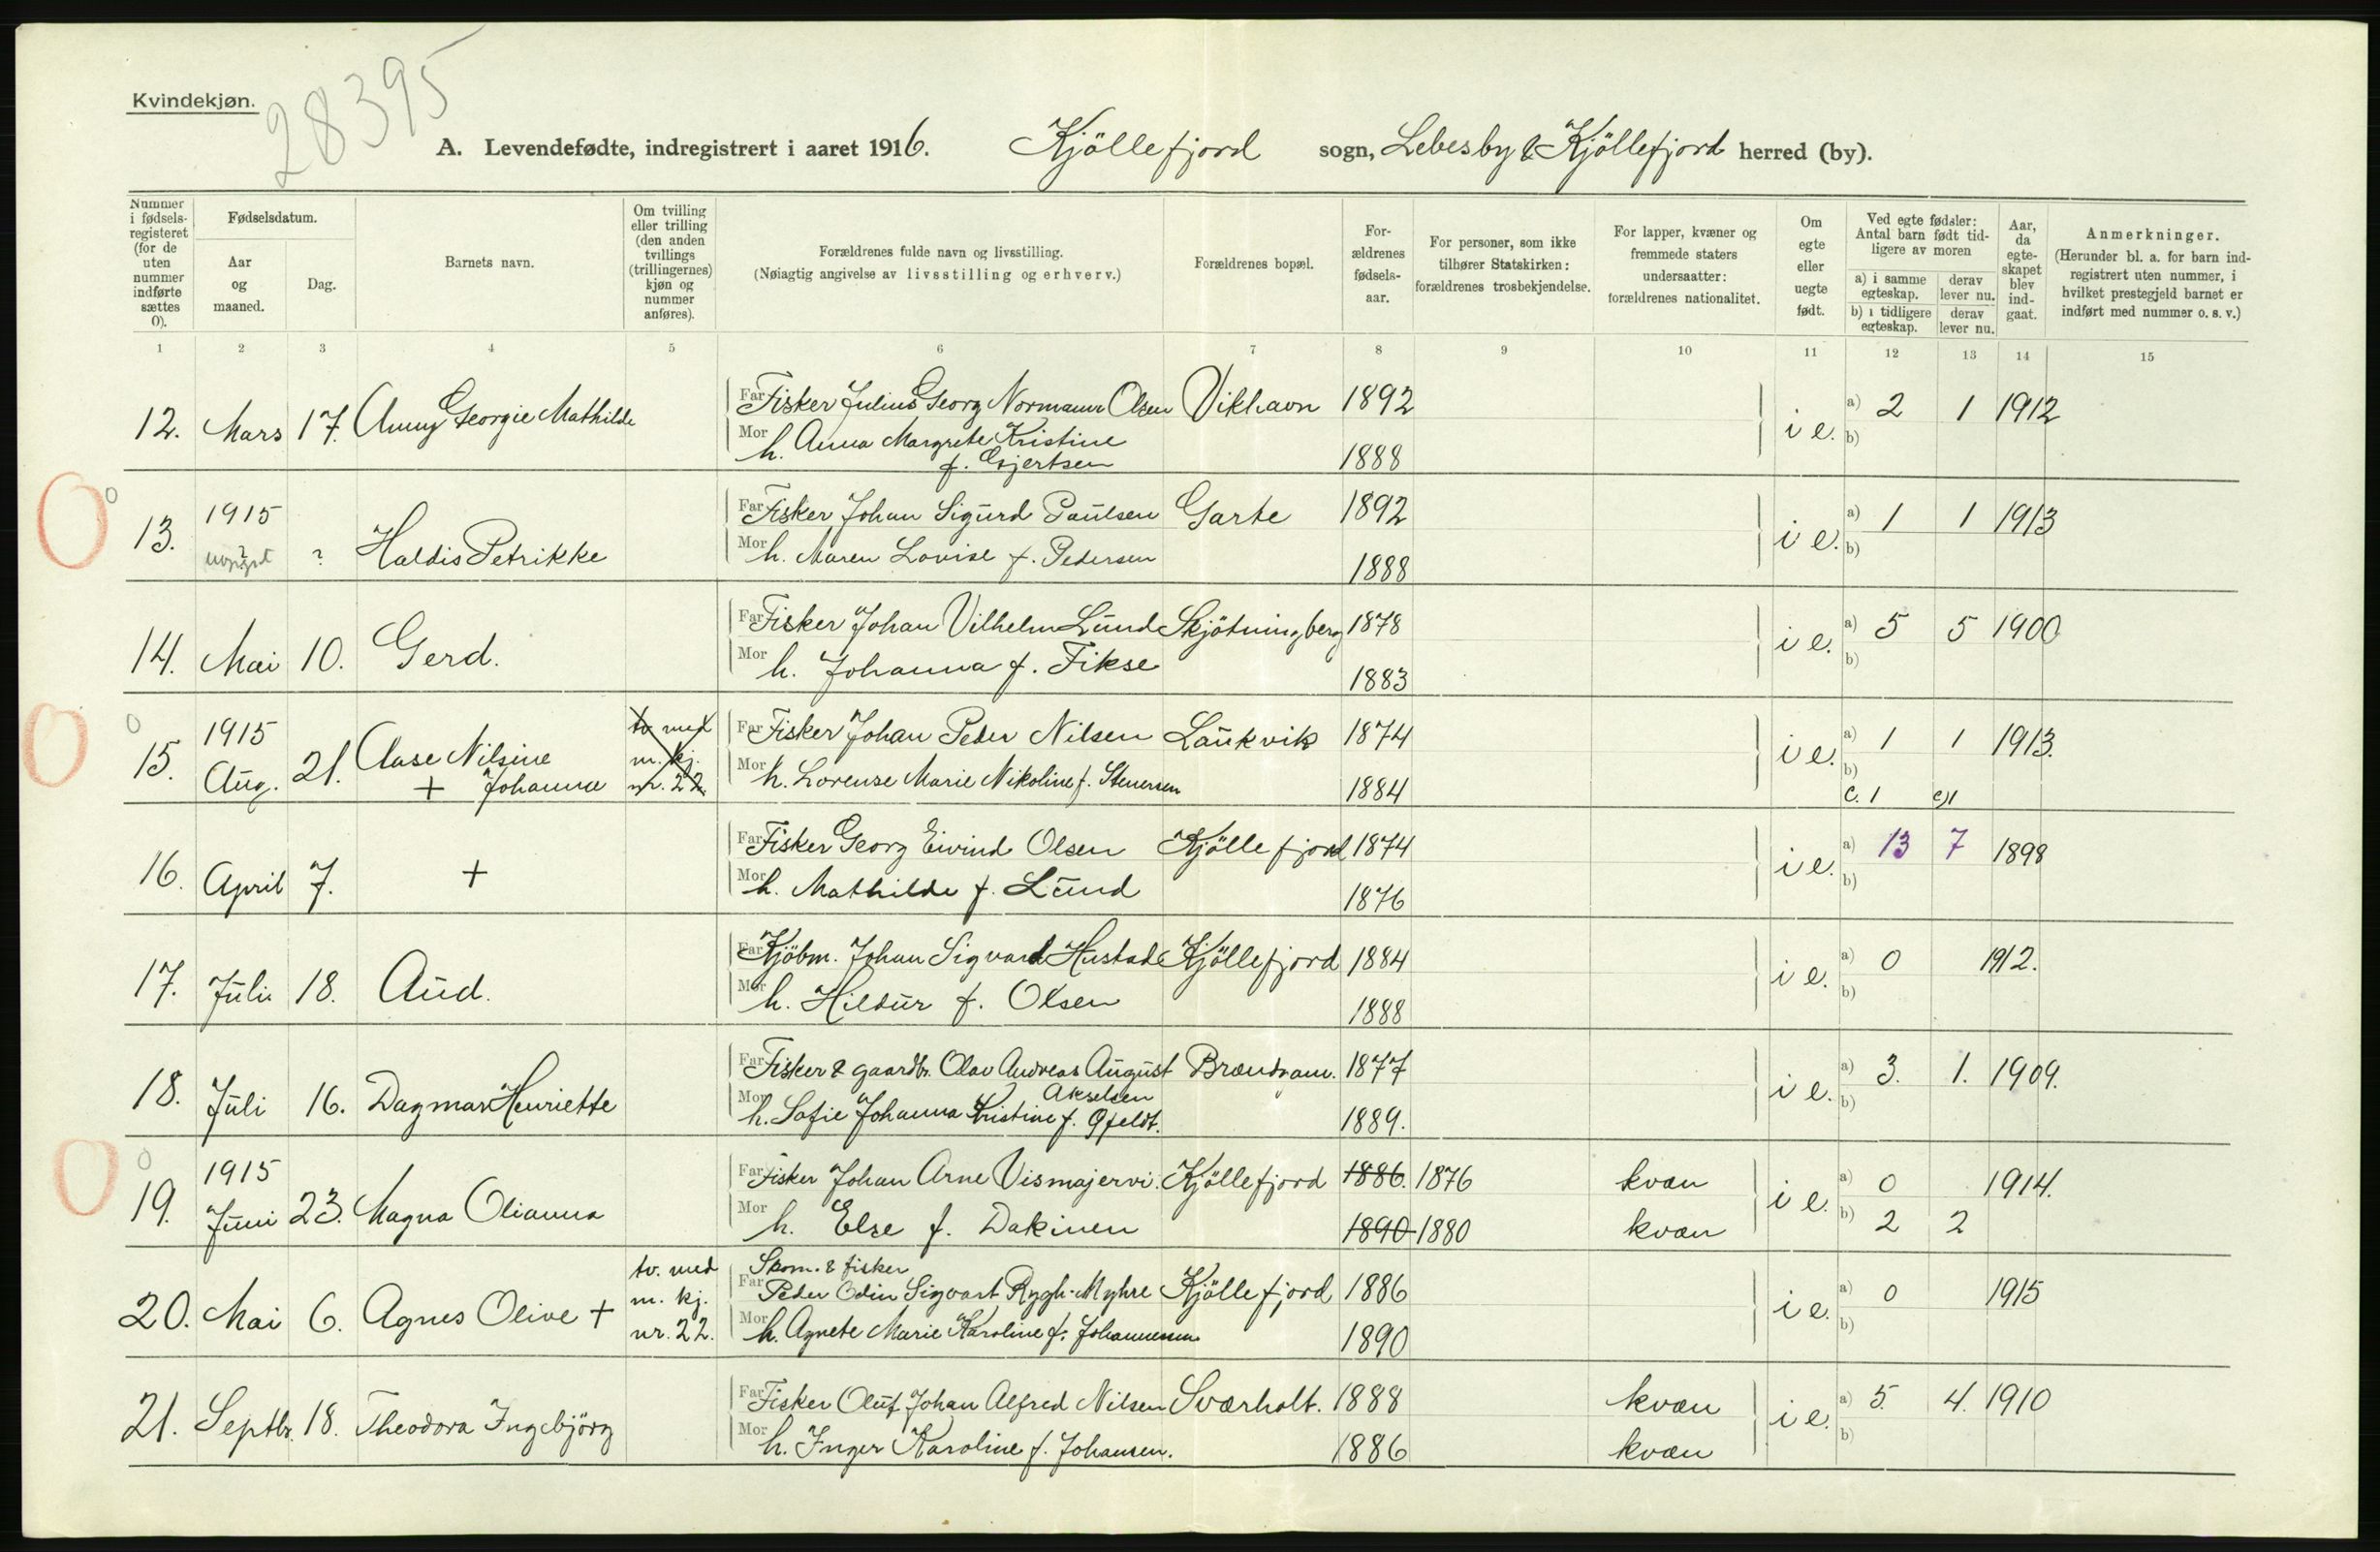 Kvindekjøn.
28395
A. Levendefødte, indregistrert i aaret 1916. Kjöllefjord sogn, Lebesby & Kjöllefjord herred (by).
Nummer i fødsels-registeret (for de uten nummer indførte sættes 0).
Fødselsdatum.
Aar og maaned.
Dag.
Barnets navn.
Om tvilling eller trilling (den anden tvillings (trillingernes) kjøn og nummer anføres).
Forældrenes fulde navn og livsstilling.
(Nøiagtig angivelse av livsstilling og erhverv.)
Forældrenes bopæl.
For-ældrenes fødsels-aar.
For personer, som ikke tilhører Statskirken: forældrenes trosbekjendelse.
For lapper, kvæner og fremmede staters undersaatter: forældrenes nationalitet.
Om egte eller uegte født.
Ved egte fødsler: Antal barn født tid-ligere av moren
a) i samme egteskap. derav lever nu.
b) i tidligere egteskap. derav lever nu.
Aar, da egte-skapet blev ind-gaat.
Anmerkninger.
(Herunder bl. a. for barn ind-registrert uten nummer, i hvilket prestegjeld barnet er indført med nummer o. s. v.)
1 2 3 4 5 6 7 8 9 10 11 12 13 14 15
12. Mars 17. Anny Georgie Mathilde Far Fisker Julius Georg Normann Olsen Vikhavn 1892 i e. a) 2 1 1912
Mor h. Anna Margrete Kristine 1888 b)
f. Gjertsen
0 0
13. 1915 ? ? Haldis Petrikke Far Fisker Johan Sigurd Paulsen Garte 1892 i e. a) 1 1 1913
Mor h. Maren Lovise f. Pedersen 1888 b)
14. Mai 10. Gerd. Far Fisker Johan Vilhelm Lund Skjötningberg 1878 i e. a) 5 5 1900
Mor h. Johanna f. Fikse 1883 b)
0 0
15. 1915 Aug. 21. Aase Nilsine + Johanna tv med m. kj. nr. 22. Far Fisker Johan Peder Nilsen Laukvik 1874 i e. a) 1 1 1913.
Mor h. Lorense Marie Nikoline f. Stenersen 1884 b)
c. 1 c) 1
16. April 7. + Far Fisker Georg Eivind Olsen Kjöllefjord 1874 i e. a) 13 7 1898
Mor h. Mathilde f. Lund 1876 b)
17. Juli 18. Aud. Far Kjöbm. Johan Sigvard Hustad Kjöllefjord 1884 i e. a) 0 1912.
Mor h. Hildur f. Olsen 1888 b)
18. Juli 16. Dagmar Henriette Far Fisker & gaardbr. Olav Andreas August Brændvam. 1877 i e. a) 3. 1. 1909.
Akselsen
Mor h. Sofie Johanna Kristine f. Ofeldt. 1889. b)
0 0
19. 1915 Juni 23. Magna Olianna Far Fisker Johan Arne Vismajervi. Kjöllefjord 1886. 1876 kvæn i e. a) 0 1914.
Mor h. Else f. Dakinen 1890 1880 kvæn b) 2 2
20. Mai 6. Agnes Olive + tv. med m. kj. nr. 22. Skom. & fisker
Far Peder Odin Sigvart Rygh-Myhre Kjöllefjord 1886 i e. a) 0 1915
Mor h. Agnete Marie Karoline f. Johannessen 1890 b)
21. Septbr. 18. Theodora Ingebjörg Far Fisker Oluf Johan Alfred Nilsen Sværholt. 1888 kvæn i e. a) 5. 4. 1910
Mor h. Inger Karoline f. Johansen. 1886 kvæn b)